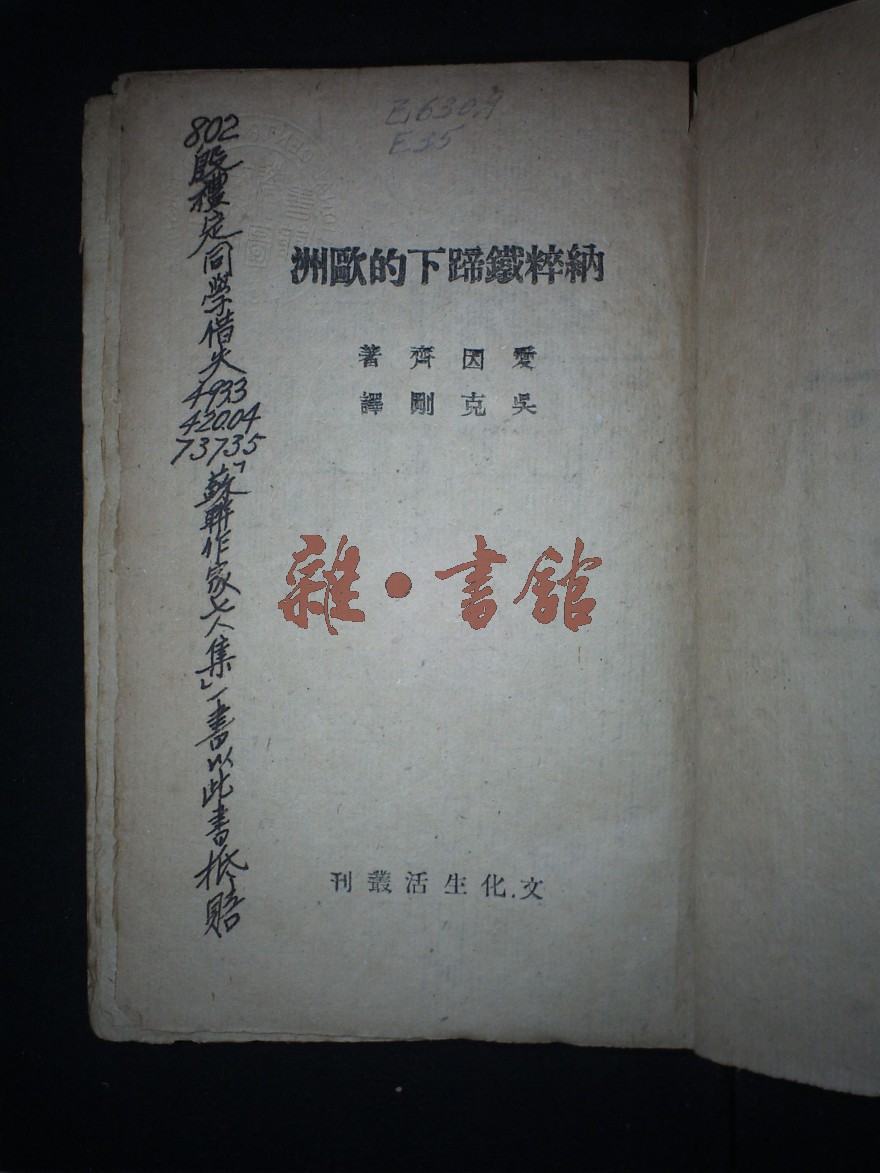 E630.9
E35
納粹鐵蹄下的歐洲
愛因齊著
吳克剛譯
雜·書館
文化生活叢刊
802
殷禮定同學借失
4933
420.04
73735
「蘇聯作家七人集」一書以此書抵賠